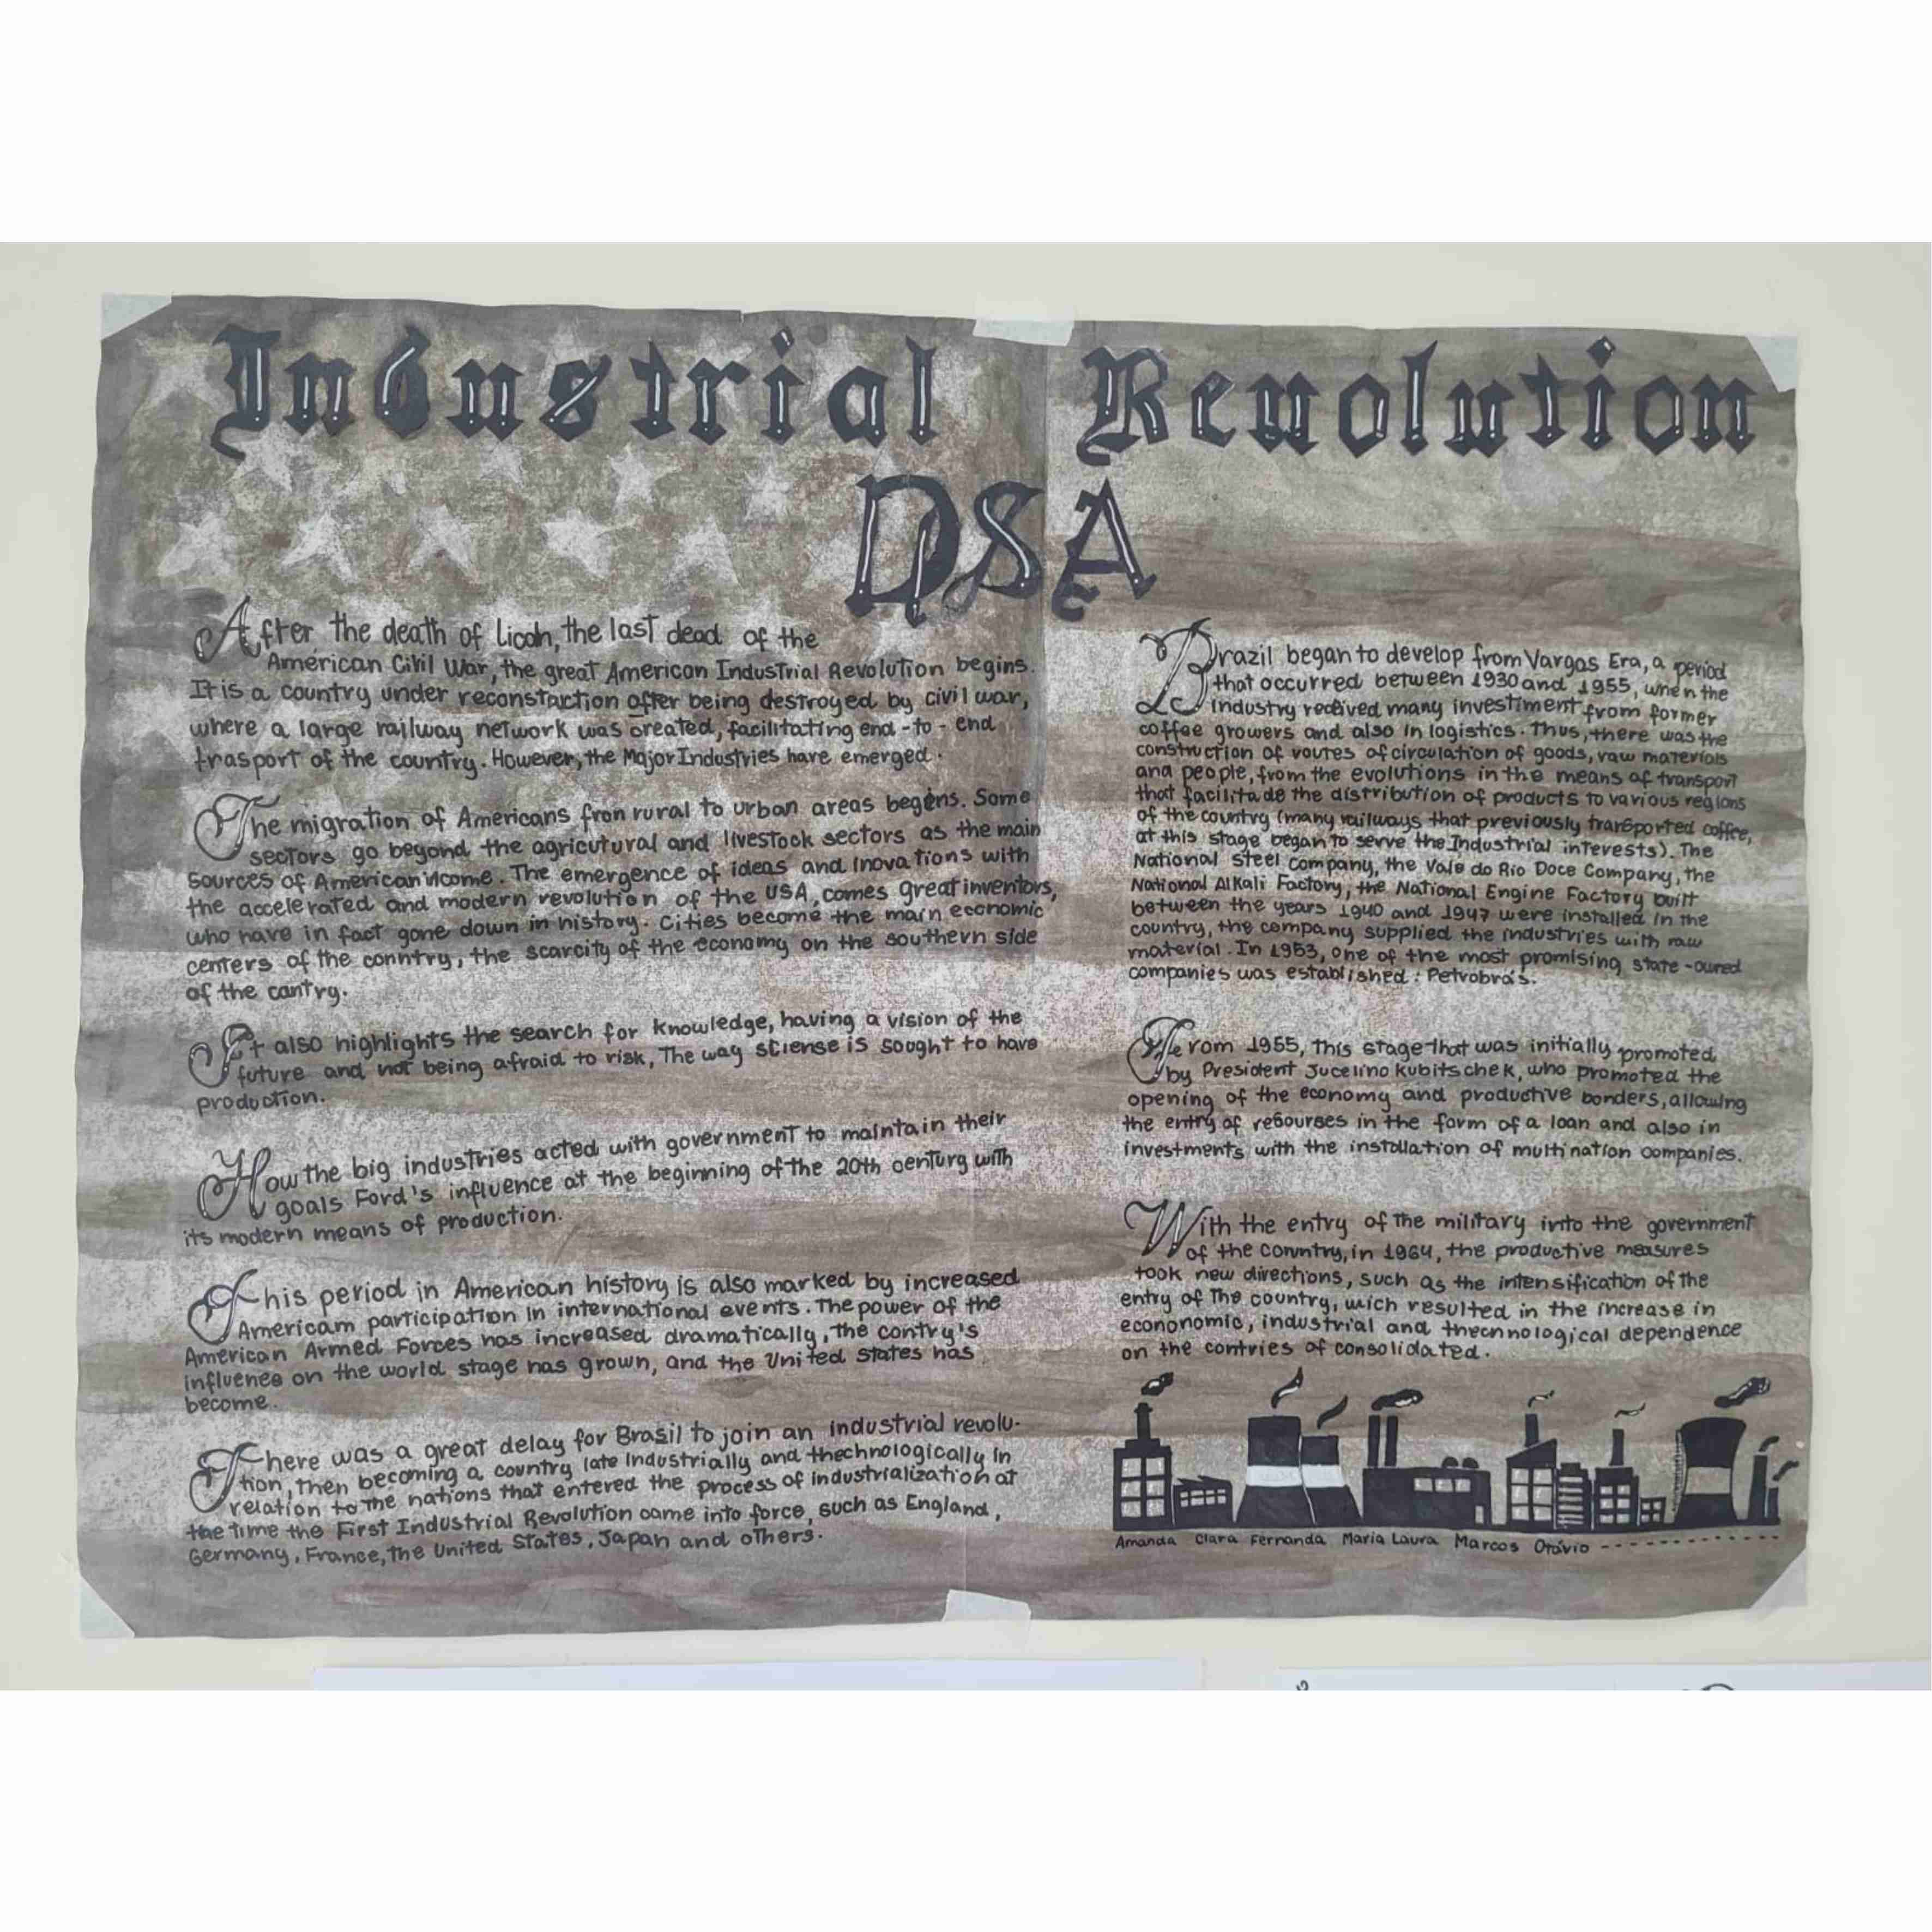 Industrial Revolution
USA
After the death of Licoln, the last dead of the
American Civil War, the great American Industrial Revolution begins.
It is a country under reconstraction after being destroyed by civil war,
where a large railway network was created, facilitating end-to-end
trasport of the country. However, the Major Industries have emerged.
The migration of Americans fron rural to urban areas begens. Some
sectors go beyond the agricutural and livestock sectors as the main
sources of American income. The emergence of ideas and inovations with
the accelerated and modern revolution of the USA, comes great inventors,
who have in fact gone down in history. Cities become the main economic
centers of the conntry, the scarcity of the economy on the southern side
of the cantry.
It also highlights the search for knowledge, having a vision of the
future and not being afraid to risk, The way sciense is sought to have
production.
How the big industries acted with government to maintain their
goals Ford's influence at the beginning of the 20th century with
its modern means of production.
This period in American history is also marked by increased
Americam participation in international events. The power of the
American Armed Forces has increased dramatically, the contry's
influence on the world stage has grown, and the United States has
become.
There was a great delay for Brasil to join an industrial revolu-
tion, then becoming a country late industrially and thechnologically in
relation to the nations that entered the process of industrialization at
the time the First Industrial Revolution came into force, such as England,
Germany, France, the United States, Japan and others.
Brazil began to develop from Vargas Era, a period
that occurred between 1930 and 1955, when the
industry received many investiment from former
coffee growers and also in logistics. Thus, there was the
construction of routes of circulation of goods, raw materials
and people, from the evolutions in the means of transport
that facilitade the distribution of products to various regions
of the country (many railways that previously transported coffee,
at this stage began to serve the Industrial interests). The
National Steel Company, the Vale do Rio Doce Company, the
National Alkali Factory, the National Engine Factory built
between the years 1940 and 1947 were installed in the
country, the company supplied the industries with raw
material. In 1953, one of the most promising state-owned
companies was established: Petrobrás.
From 1955, this stage that was initially promoted
by President Jucelino Kubitschek, who promoted the
opening of the economy and productive bonders, allowing
the entry of resourses in the form of a loan and also in
investments with the installation of multination companies.
With the entry of the military into the government
of the conuntry, in 1964, the productive measures
took new directions, such as the intensification of the
entry of The country, wich resulted in the increase in
econonomic, industrial and thecnnological dependence
on the contries of consolidated.
Amanda Clara Fernanda Maria Laura Marcos Otávio